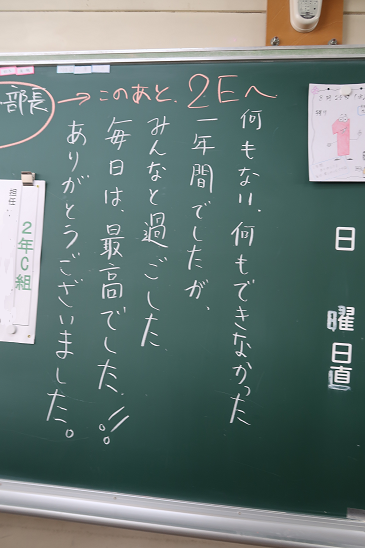 部長→このあと、2Eへ
何もない、何もできなかった
一年間でしたが、
みんなと過ごした
毎日は、最高でした!!
ありがとうございました。
担任
2年C組
1
日
曜日
日直